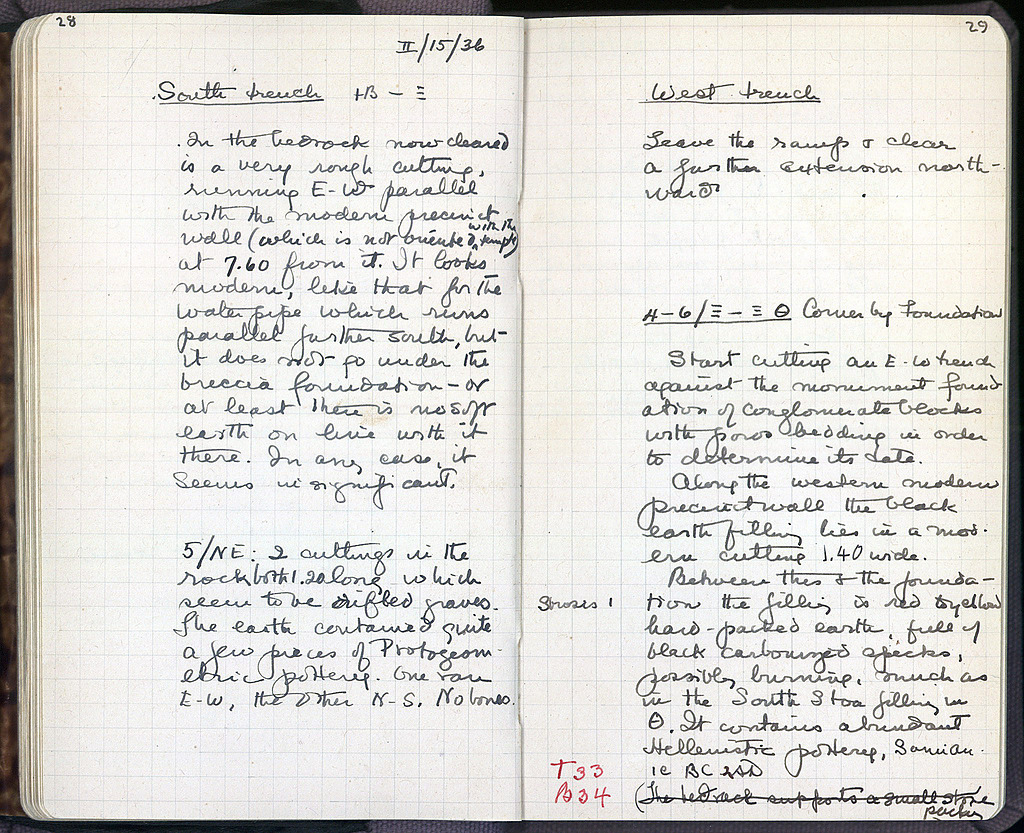 28
II/15/36
South trench HB - Ξ
In the bedrock now cleared
is a very rough cutting,
running E-W parallel
with the modern precinct
wall (which is not oriented with the temple)
at 7.60 from it. It looks
modern, like that for the
water pipe which runs
parallel further south, but
it does not go under the
breccia foundation - or
at least there is no soft
earth on line with it
there. In any case, it
seems insignificant.
5/NE: 2 cuttings in the
rock both 1.20 long, which
seem to be rifled graves.
The earth contained quite
a few pieces of Protogeom-
etric pottery. One ran
E-W, the other N-S. No bones.
29
West trench
Leave the ramp & clear
a further extension north-
ward
H-6/Ξ-ΞΘ Corner by Foundation
Start cutting an E-W trench
against the monument found
ation of conglomerate blocks
with poros bedding in order
to determine its date.
Along the western modern
precinct wall the black
earth filling lies in a mod-
ern cutting 1.40 wide.
Between this & the founda-
tion the filling is red to yellow
hard-packed earth, full of
black carbonized specks,
possibly burning, much as
in the South Stoa filling in
Θ. It contains abundant
Hellenistic pottery, Samian.
1c BC AD
T33
B34
(The bedrock supports a small stone
packing